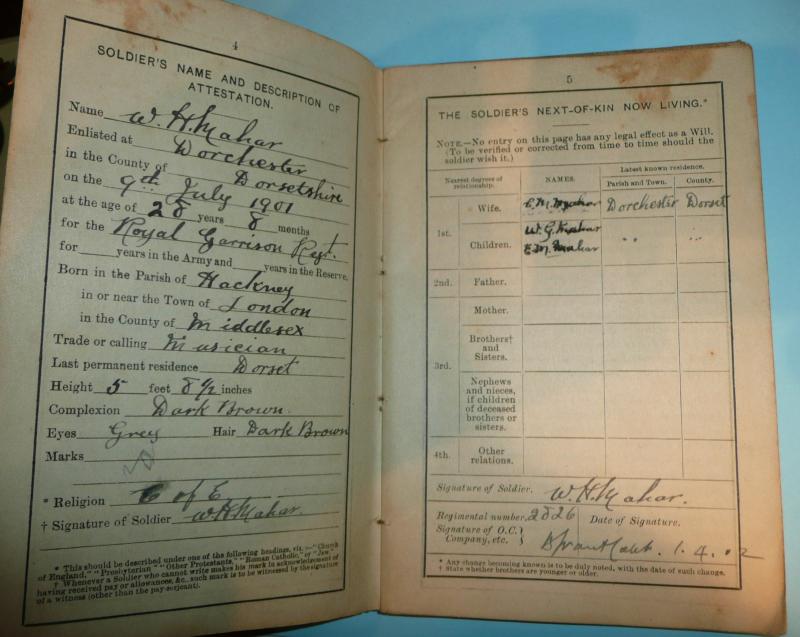 4
SOLDIER'S NAME AND DESCRIPTION OF
ATTESTATION.
Name W. H. Mahar
Enlisted at Dorchester
in the County of Dorsetshire
on the 9th July 1901
at the age of 28 years 8 months
for the Royal Garrison Regt.
for years in the Army and years in the Reserve.
Born in the Parish of Hackney
in or near the Town of London
in the County of Middlesex
Trade or calling Musician
Last permanent residence Dorset
Height 5 feet 8 1/2 inches
Complexion Dark Brown.
Eyes Grey Hair Dark Brown
Marks
* Religion C of E
† Signature of Soldier W. H. Mahar
* This should be described under one of the following headings, viz.:—"Church
of England," "Presbyterian," "Other Protestants," "Roman Catholic," or "Jew."
† Whenever a Soldier who cannot write makes his mark in acknowledgment of
having received pay or allowances, &c., such mark is to be witnessed by the signature
of a witness (other than the pay-serjeant).
5
THE SOLDIER'S NEXT-OF-KIN NOW LIVING.*
NOTE.—No entry on this page has any legal effect as a Will.
(To be verified or corrected from time to time should the
soldier wish it.)
Nearest degrees of relationship. NAMES. Latest known residence.
Parish and Town. County.
1st. Wife. E. M. Mahar Dorchester Dorset
Children. W. G. Mahar " " " "
E. M. Mahar
2nd. Father.
3rd. Mother.
Brothers†
and
Sisters.
Nephews
and nieces,
if children
of deceased
brothers or
sisters.
4th. Other
relations.
Signature of Soldier. W. H. Mahar.
Regimental number, 2826 Date of Signature.
Signature of O.C.
Company, etc. 1.4.02
* Any change becoming known is to be duly noted, with the date of such change.
† State whether brothers are younger or older.